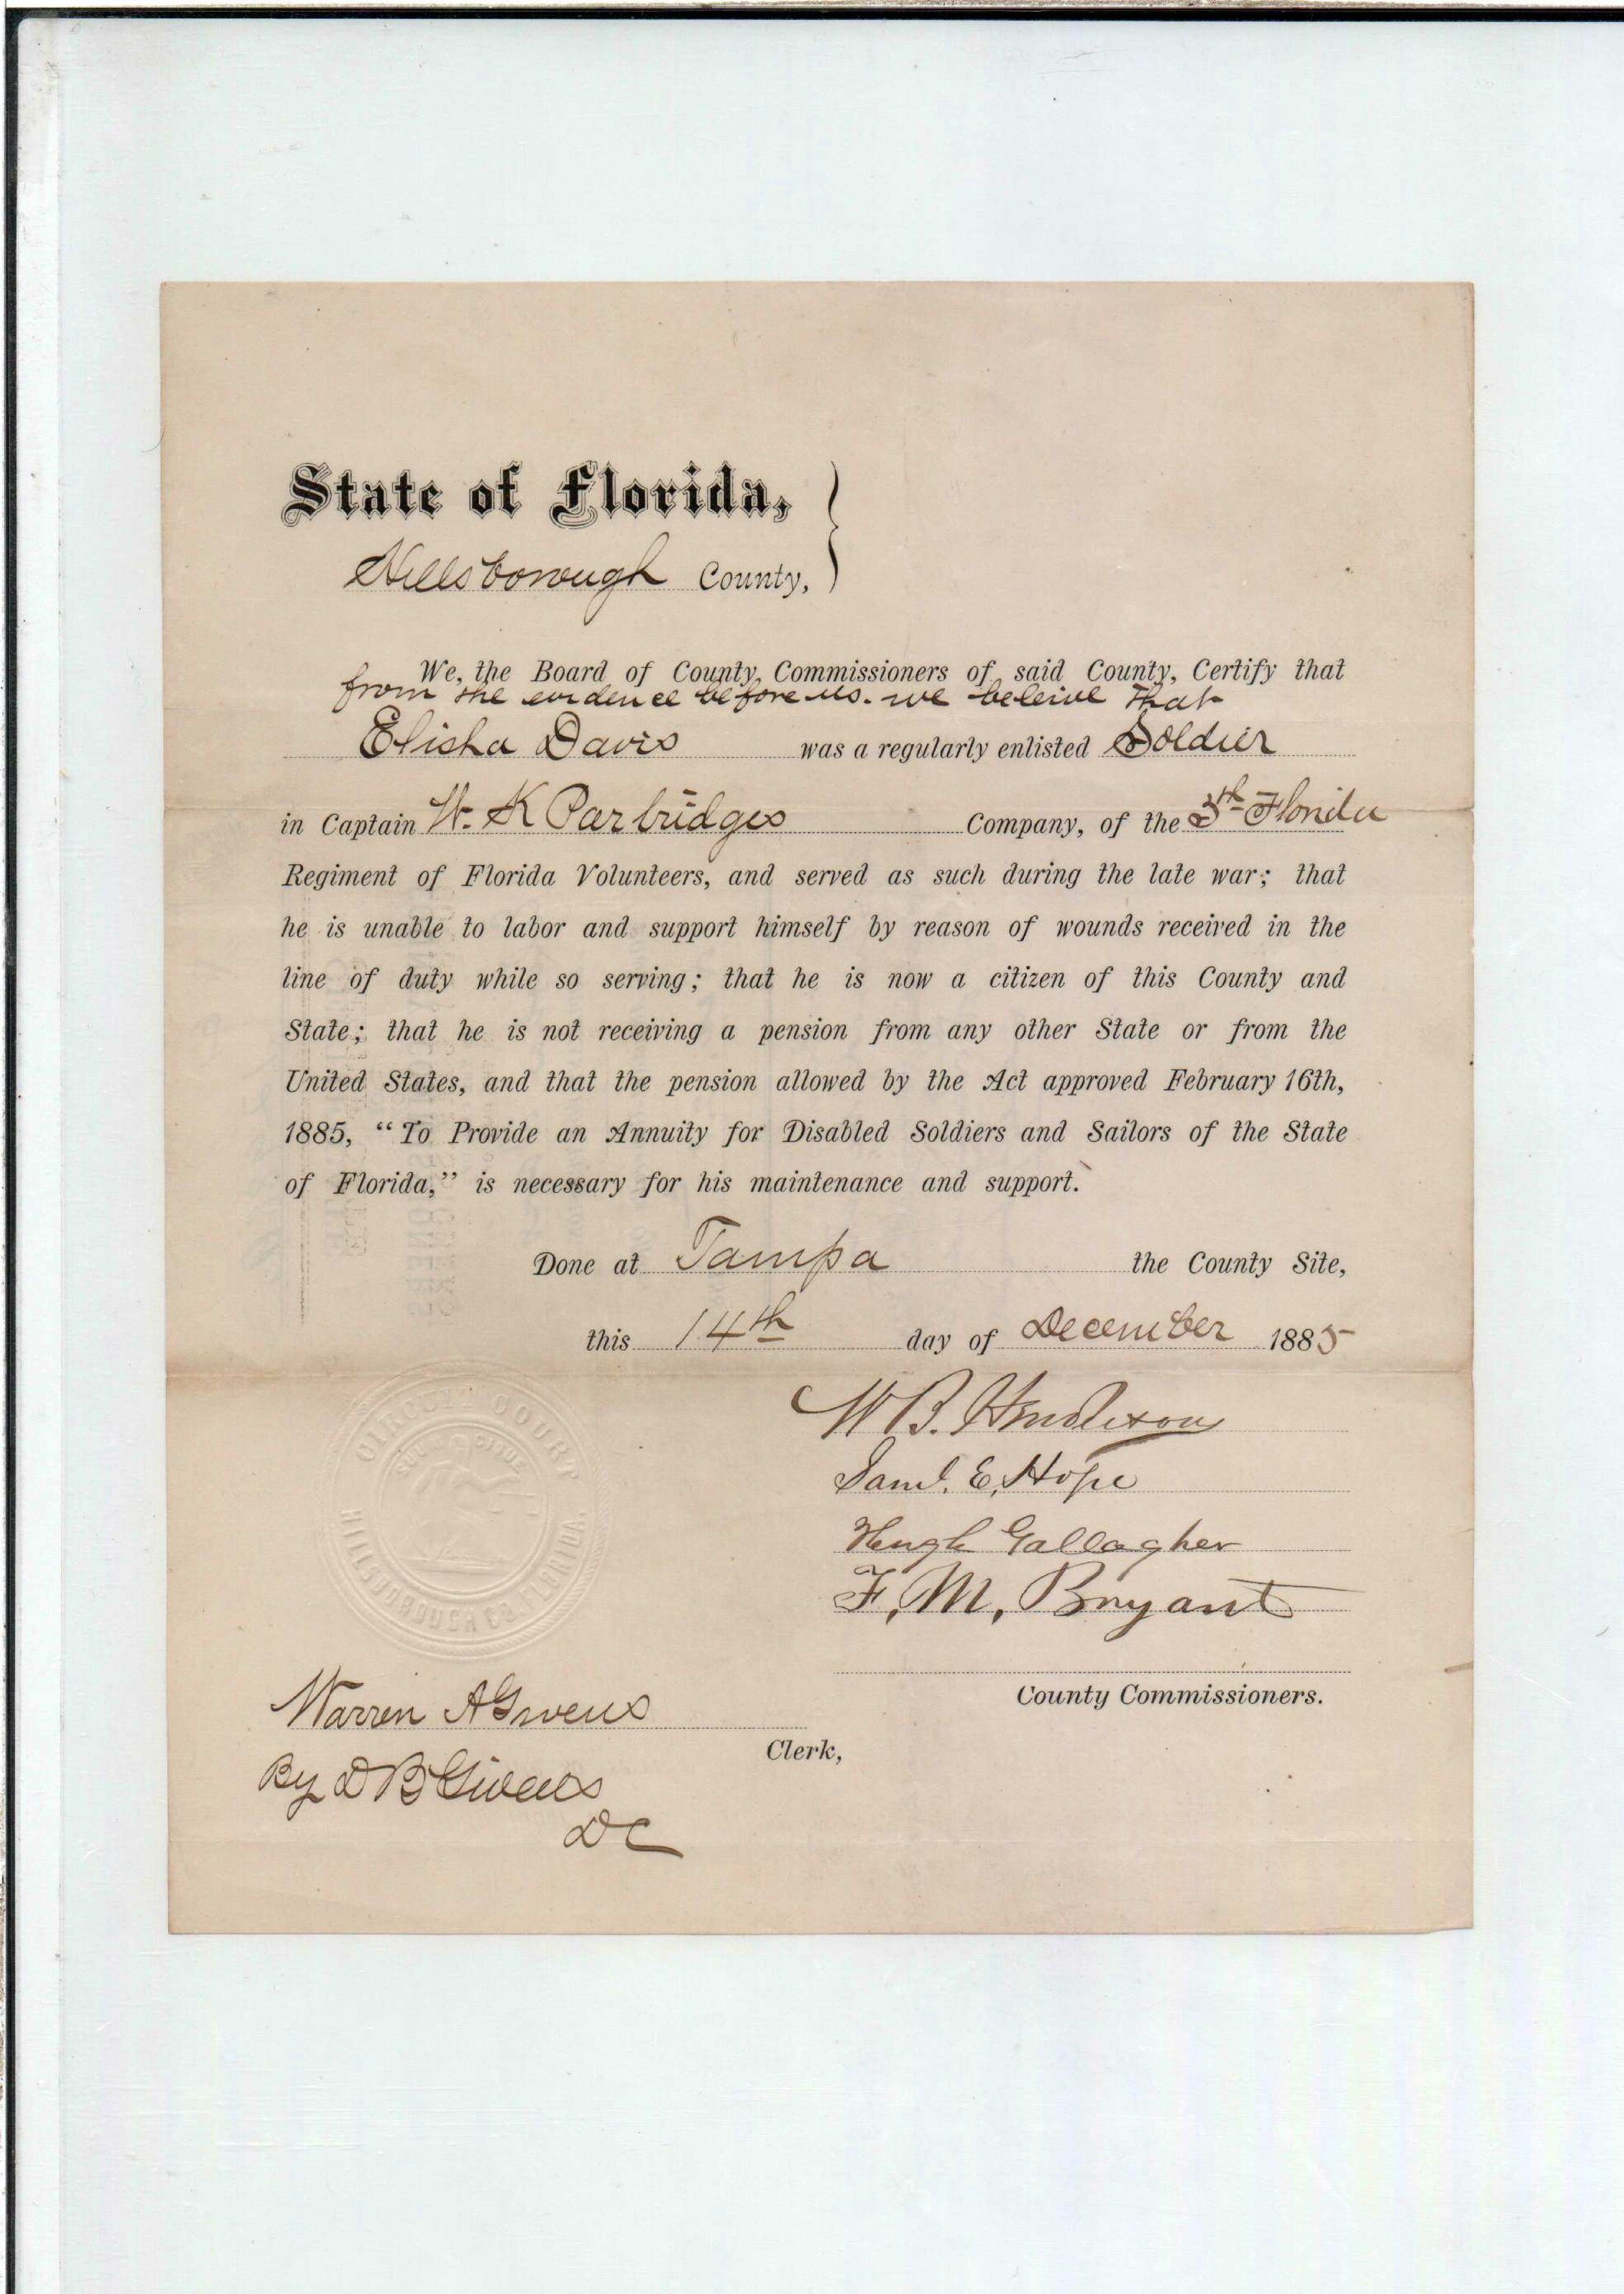 State of Florida,
Hillsborough County,
We, the Board of County Commissioners of said County, Certify that
from the evidence before us. we beleive that
Elisha Davis was a regularly enlisted Soldier
in Captain W. K Partridges Company, of the 5th Florida
Regiment of Florida Volunteers, and served as such during the late war; that
he is unable to labor and support himself by reason of wounds received in the
line of duty while so serving; that he is now a citizen of this County and
State; that he is not receiving a pension from any other State or from the
United States, and that the pension allowed by the Act approved February 16th,
1885, “To Provide an Annuity for Disabled Soldiers and Sailors of the State
of Florida,” is necessary for his maintenance and support.
Done at Tampa the County Site,
this 14th day of December 1885
W B. Henderson
Saml. E. Hope
Hugh Gallagher
F. M. Bryant
County Commissioners.
CIRCUIT COURT
HILLSBOROUGH CO. FLORIDA.
Warren A Givens
Clerk,
By D B Givens
DC